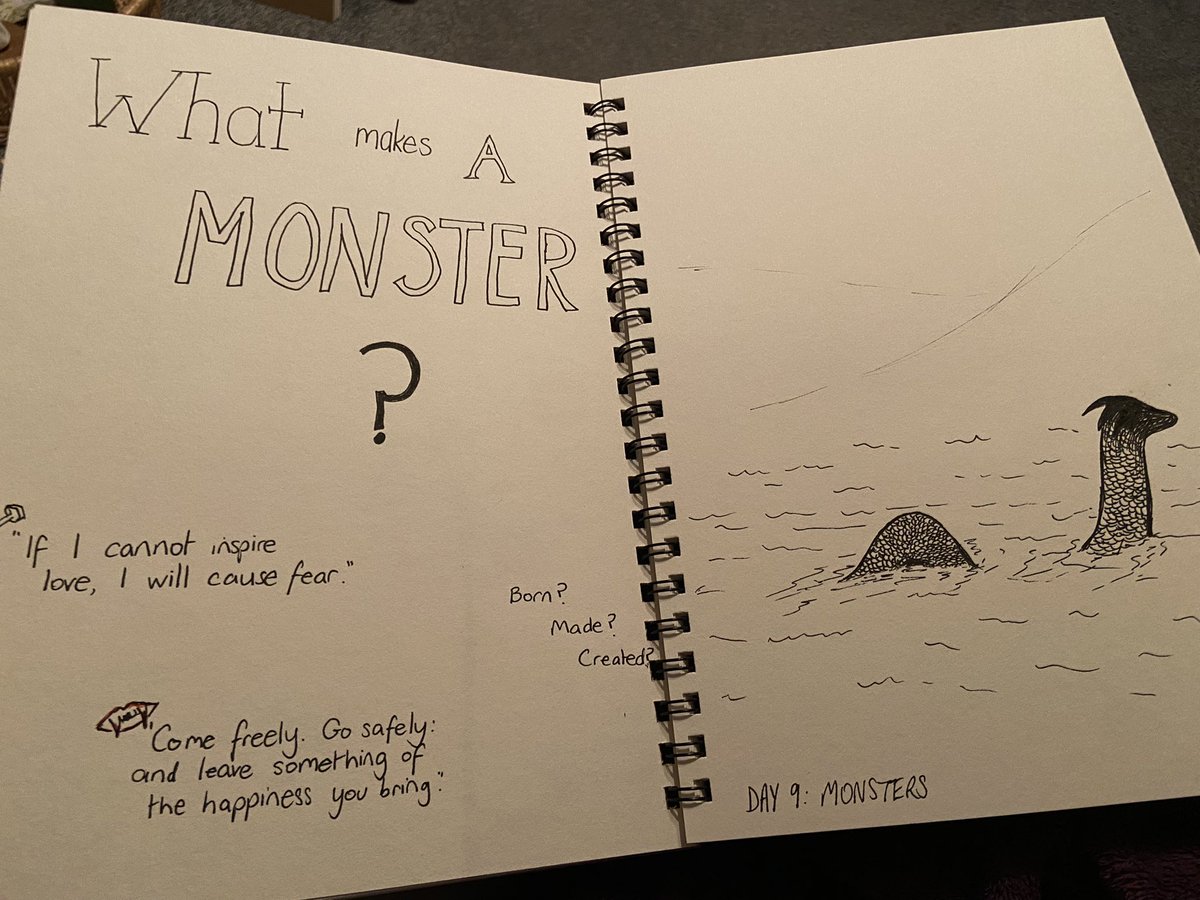 What makes A
MONSTER
?
"If I cannot inspire
love, I will cause fear."
Born?
Made?
Created?
"Come freely. Go safely:
and leave something of
the happiness you bring."
DAY 9: MONSTERS